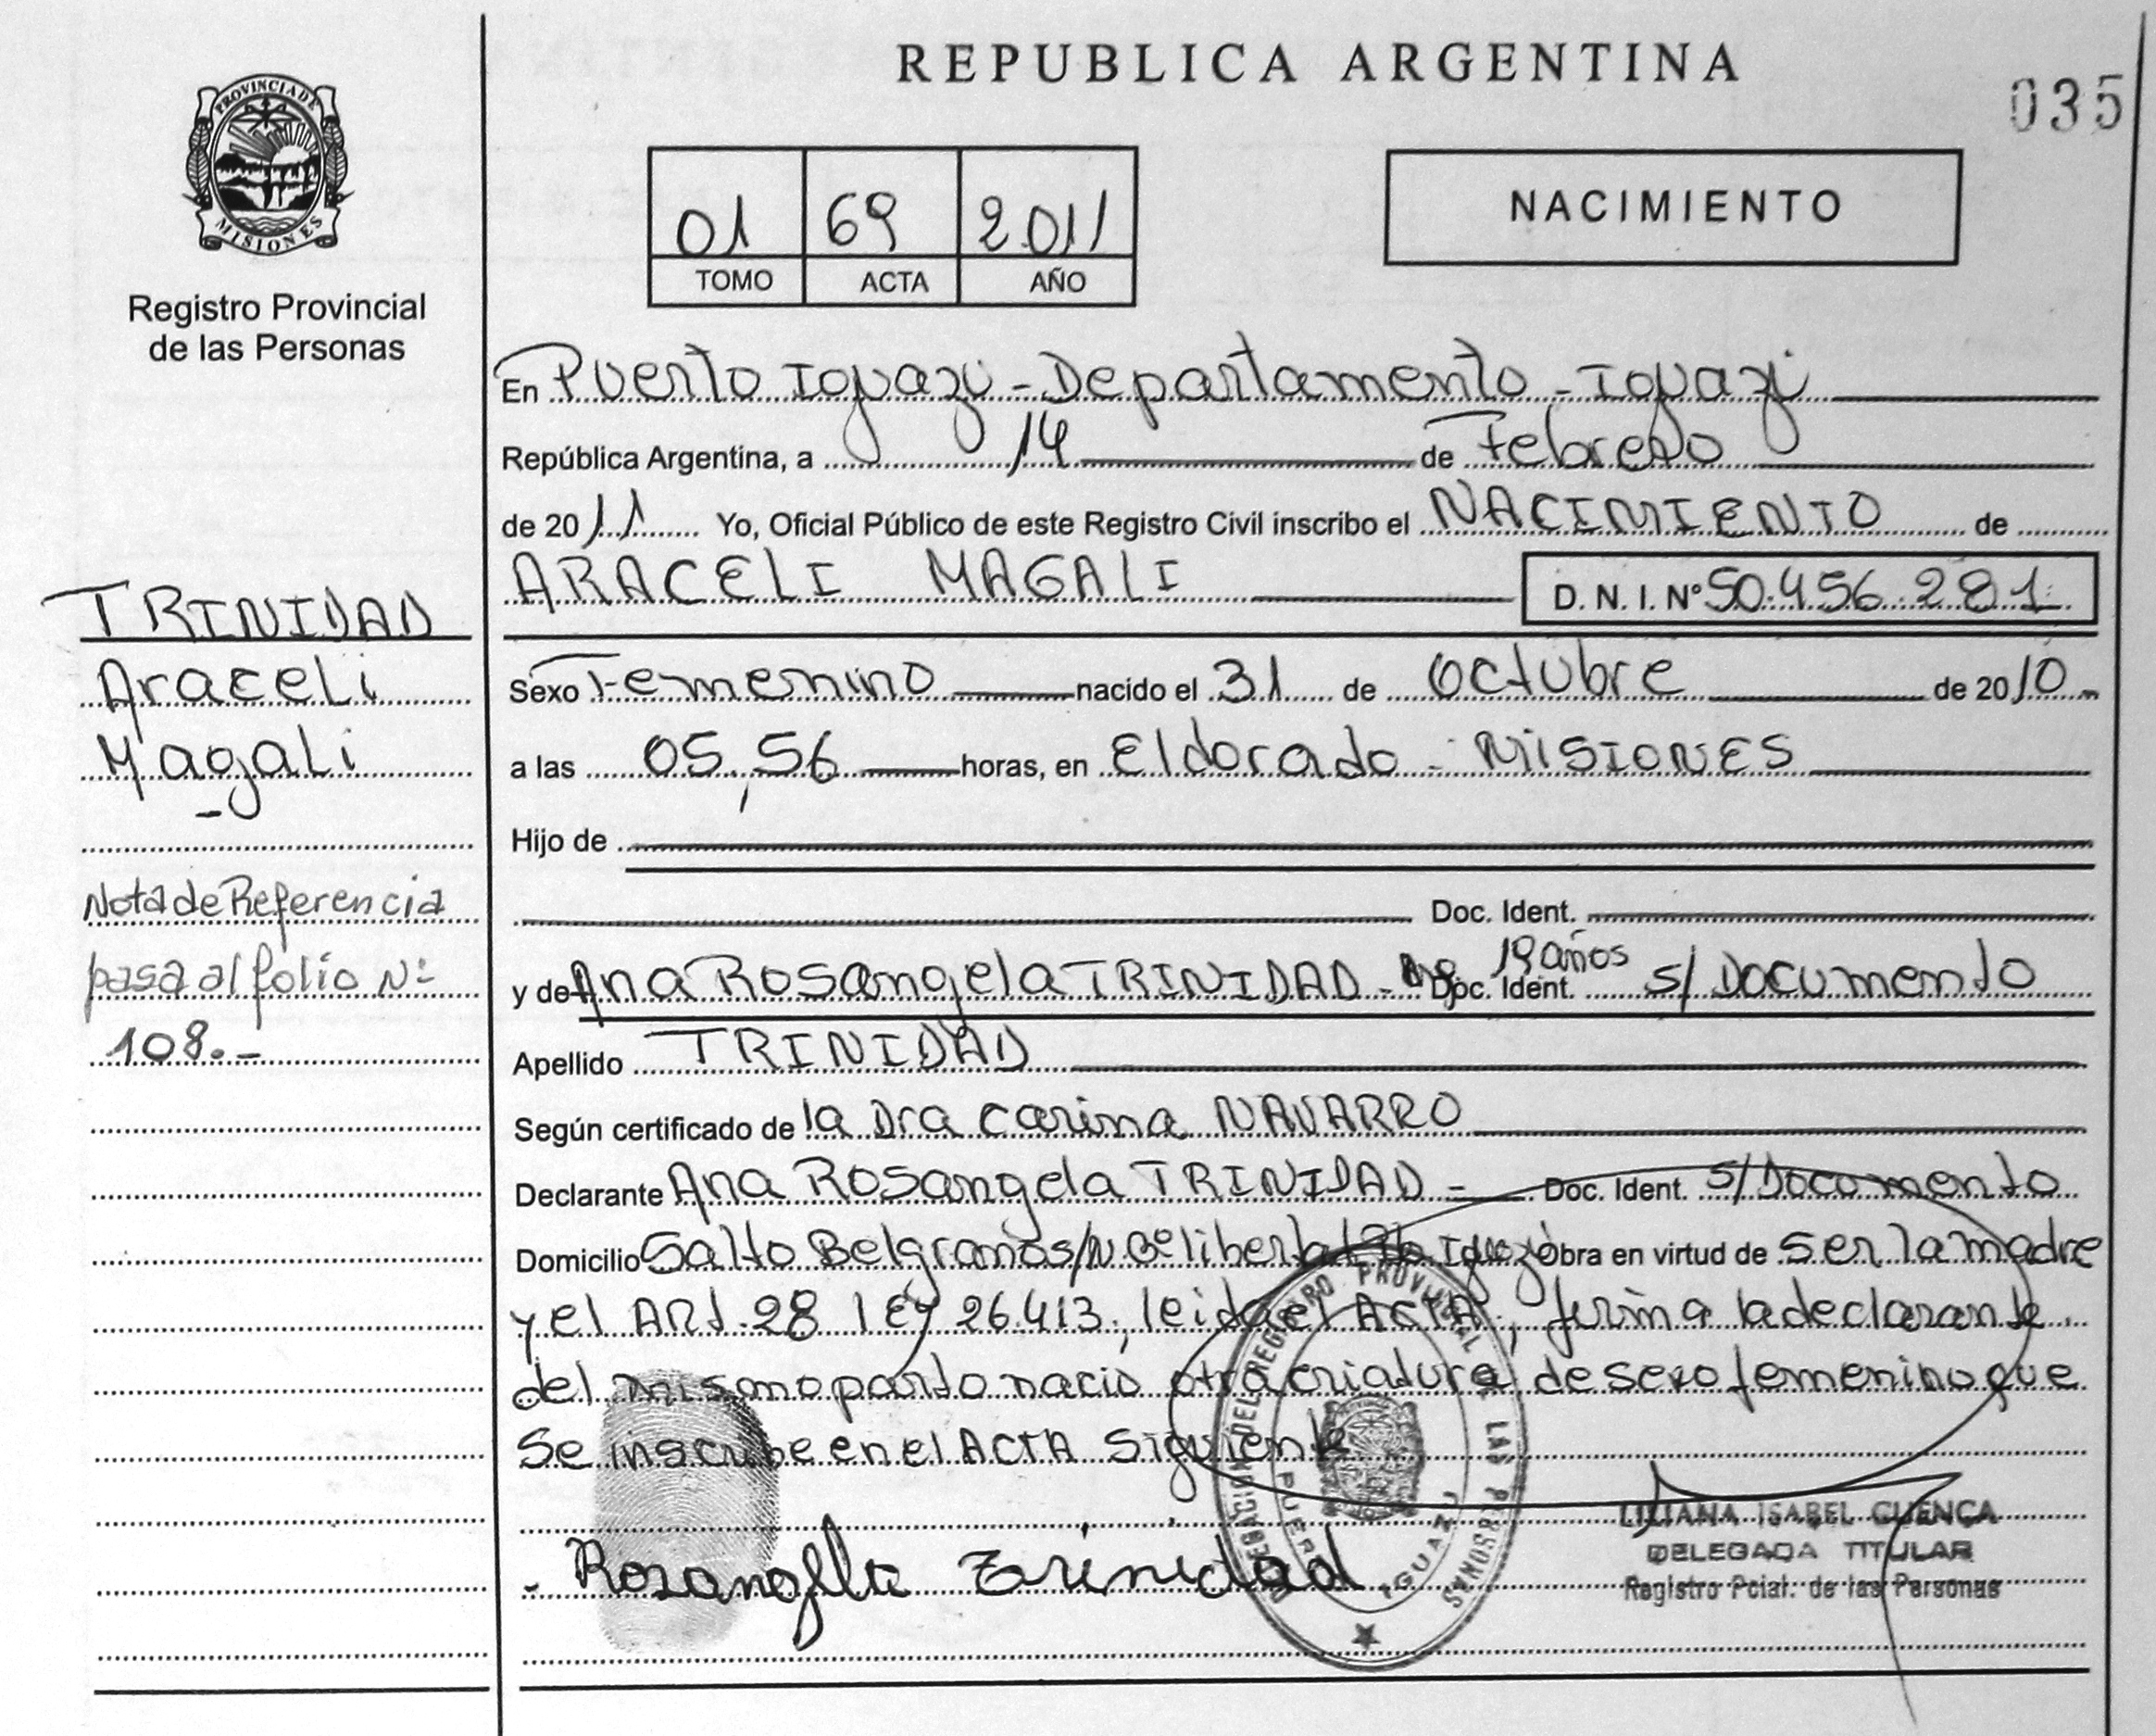 REPUBLICA ARGENTINA
035
PROVINCIA DE
MISIONES
Registro Provincial
de las Personas
01 69 2011
TOMO ACTA AÑO
NACIMIENTO
En Puerto Iguazú - Departamento - Iguazú
República Argentina, a 14 de Febrero
de 2011 Yo, Oficial Público de este Registro Civil inscribo el NACIMIENTO de
ARACELI MAGALI D. N. I. Nº 50.456.281
TRINIDAD
Araceli
Magali
-
Sexo Femenino nacido el 31 de Octubre de 2010
a las 05,56 horas, en Eldorado - MISIONES
Hijo de
Doc. Ident.
Nota de Referencia
pasa al folio Nº
108.-
y de Ana Rosangela TRINIDAD - Arg. 19 años Doc. Ident. s/ Documento
Apellido TRINIDAD
Según certificado de la Dra Carina NAVARRO
Declarante Ana Rosangela TRINIDAD - Doc. Ident. s/ Documento
Domicilio Salto Belgrano s/N Bº libertad Pto Iguazú Obra en virtud de ser la madre
y el ART. 28 lEy 26.413, leida el ACTA, firma la declarante.
del mismo parto nacio otra criatura de sexo femenino que
Se inscribe en el ACTA siguiente
Rosangella Trinidad
DELEGACION DEL REGISTRO PROVINCIAL DE LAS PERSONAS
PUERTO IGUAZU
LILIANA ISABEL CUENCA
DELEGADA TITULAR
Registro Pcial. de las Personas